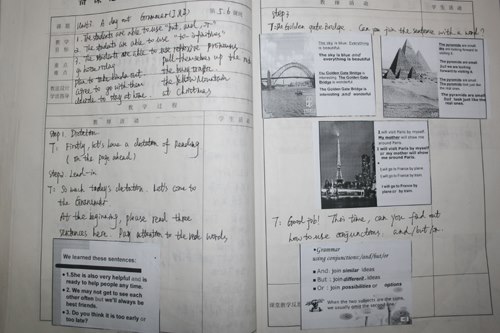 课题 Unit2 A day out Grammar (1)(2) 第5.6课时
1. The students are able to use "but, and, or"
2. The students are able to use "to-infinitives"
3. The students are able to use reflexive pronouns
go horse riding pull themselves up the rocks
plan to take
agree to go with them
decide to stay at home at Christmas
教学过程
教师活动 学生活动
Step 1. Dictation
T: Firstly, let's have a dictation of Reading
(on the page ahead)
Step 2. Lead-in
T: So much today's dictation. Let's come to
the Grammar
At the beginning, please read three
sentences here. Pay attention to the words,
We learned these sentences:
1.She is also very helpful and is
ready to help people any time.
2. We may not get to see each
other often but we'll always be
best friends.
3. Do you think it is too early or
too late?
教师活动 学生活动
Step 3
T: The Golden gate Bridge. Can you join the sentence with a word?
The sky is blue. Everything
is beautiful.
The sky is blue and
everything is beautiful
The Golden Gate Bridge is
interesting. The Golden Gate
Bridge is wonderful.
The Golden Gate Bridge is
interesting and wonderful
The pyramids are small
The pyramids are small.
The pyramids are small
But look just like the real
ones.
I will visit Paris by myself.
My mother will show
me around Paris.
I will visit Paris by myself
or my mother will show
me around Paris.
I will go to France by plane.
I will go to France by train.
I will go to France by
plane or by train.
T: Good job! This time, can you find out
how to use conjunctions. and/but/or.
Grammar
using conjunctions:and/but/or
And: join similar ideas
But : join different ideas
Or : join possibilities or options
When the two subjects are the same,
we usually omit the second one.